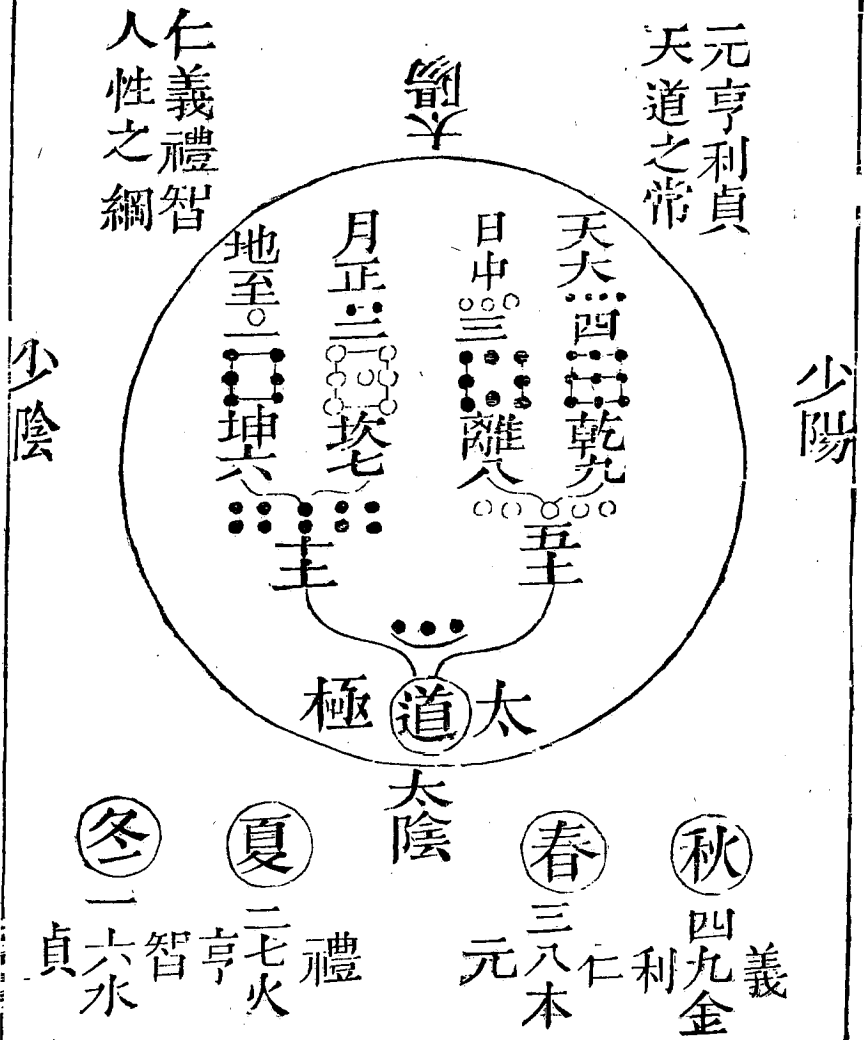 元亨利貞
天道之常
仁義禮智
人性之綱
太陽
少陽
少陰
天大
四
乾九
日中
三
離八
月正
二
坎七
地至
一
坤六
五土
十土
太道極
太陰
秋
義
四九金
利
春
仁
三八本
元
夏
禮
二七火
亨
冬
智
一六水
貞